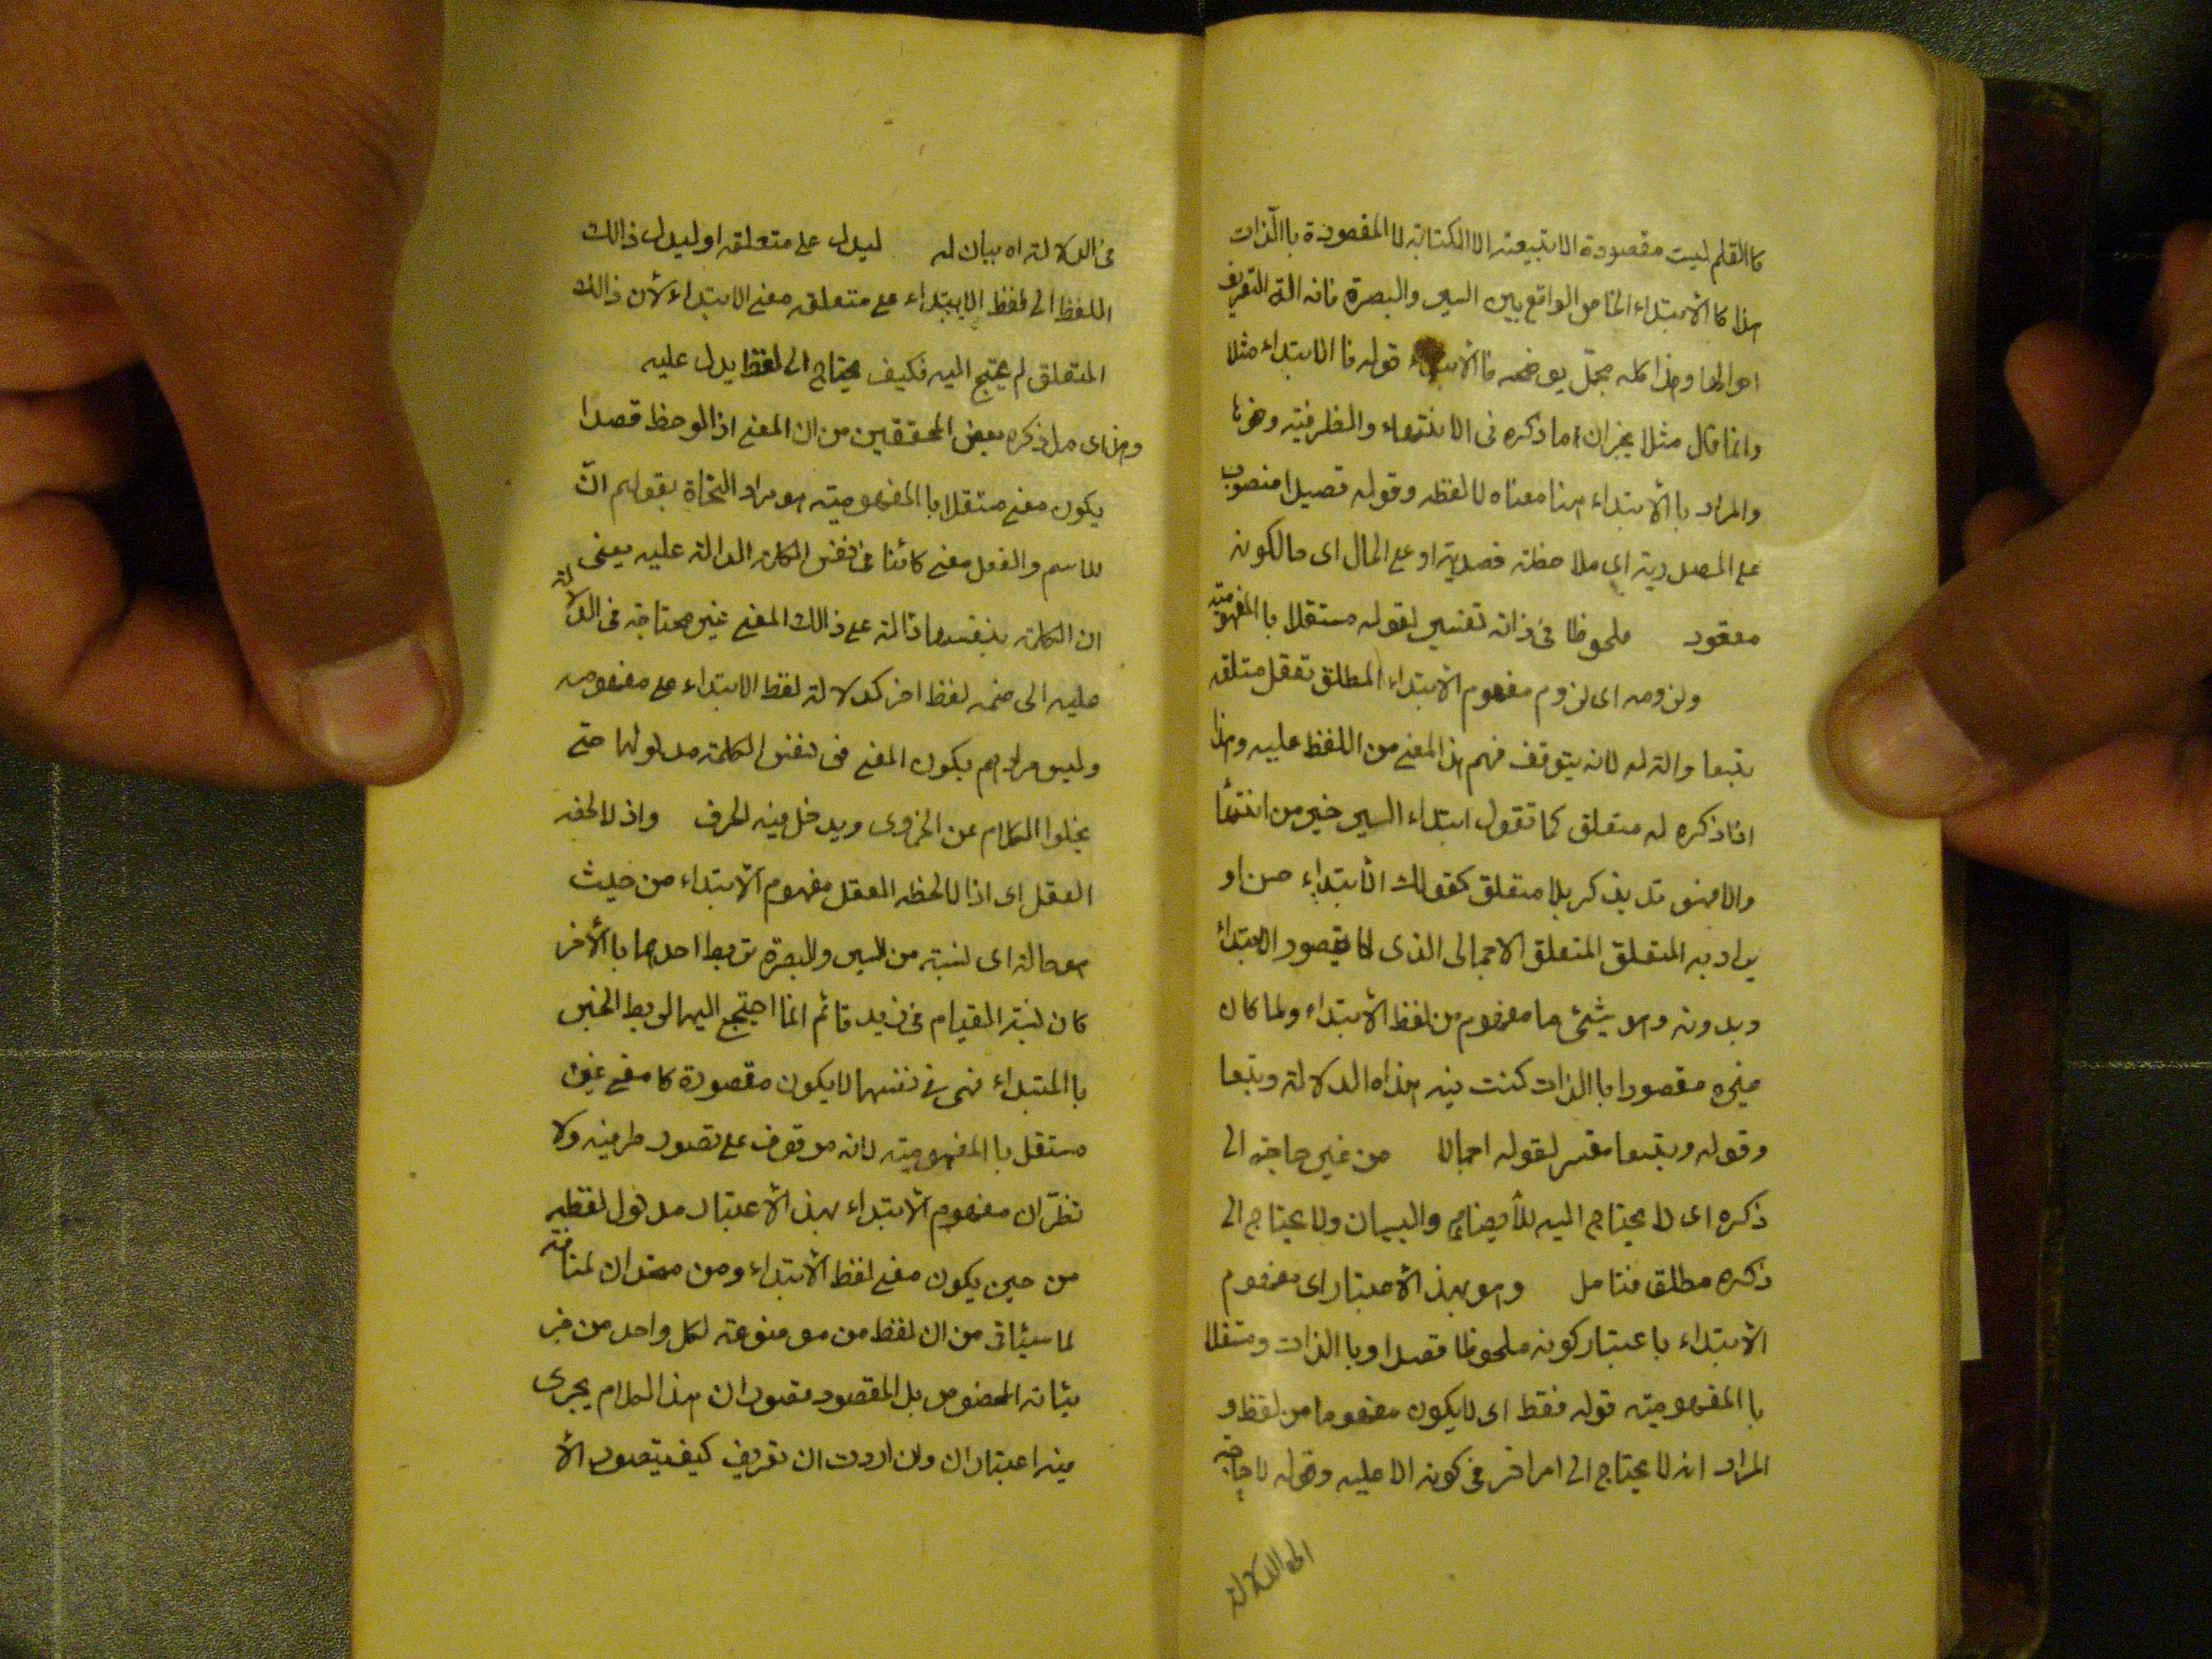 كاالقلم ليست مقصودة الا بتبعية الا الكتابة لا المقصودة باالذات
هذا كاالأبتداء الخاص الواقع بين السير والبصرة فانه الة لتعريف
احوالها وهذا كله مجمل يوضحه فاالأبتداء قوله فا الابتداء مثلا
وانما قال مثلا ما ذكره فى الانتهاء والظرفية وغيرها
والمراد باالأبتداء هنا معناه لا لفظه وقوله قصدا منصوب
على المصدرية اى ملاحظة قصدية او على الحال اى حالكونه
مقصود ملحوظا فى ذاته تفسير لقوله مستقلا باالمفهومية
ولزومه اى لزوم مفهوم الأبتداء المطلق تعقل متعلقه
بتبعا والة له لانه يتوقف فهم هذا المعنى من اللفظ عليه وهذا
اذا ذكره له متعلق كما تقول ابتداء السير خير من انتهاء
والا فهو قد يذكر بلا متعلق كقولك الأبتداء حسن او
يراد به المتعلق المتعلق الاجمالى الذى لا يتصور الابتداء
وبدونه وهو شئ ما مفهوم من لفظ الأبتداء ولما كان
غيره مقصودا باالذات كنت فيه هذاه الدلالة وبتبعا
وقوله وبتبعا مفسر لقوله اجمالا من غير حاجة الى
ذكره اى لا يحتاج اليه للأيضاح والبيان ولا يحتاج الى
ذكره مطلق فتامل وهو بهذ الأعتبار اى مفهوم
الأبتداء باعتبار كونه ملحوظا قصدا وباالذات ومستقلا
باالمفهومية قوله فقط اى لا يكون مفهوما من لفظ و
المراد انه لا يحتاج الى امر اخر فى كونه الا عليه وقوله لا حاجة
الى الدلالة
فى الدلالة اه بيان له ليدل على متعلقه او ليدل ذالك
اللفظ الى لفظ الابتداء على متعلقه معنى الابتداء لأن ذالك
المتعلق لم يحتج اليه فكيف يحتاج الى لفظ يدل عليه
وهذاى ما ذكره بعض المحققين من ان المعنى اذا لوحظ قصدا
يكون معنى مستقلا باالمفهومية هو مراد النحاة بقولهم ان
للاسم والفعل معنى كائنا فى نفس الكلمة الدالة عليه يعنى
ان الكلمة بنفسها دالة على ذالك المعنى غير محتاجة فى الدلالة
عليه الى ضمه لفظ اخر كدلالة لفظ الابتداء على مفهومه
وليس مرادهم بكون المعنى فى نفس الكلمة مدلولها حتى
يخلوا الكلام عن الجزوى ويدخل فيه لحرف واذ لاحظه
العقل اى اذا لاحظه العقل مفهوم الأبتداء من حيث
هو حالة اى نسبة من السير والبصرة تربط احدهما باالأخر
كان نسبة القيام فى زيد قائم انما احتيج اليها لربط الخبر
باالمبتداء فهى فى نفسها لا يكون مقصودة كا معنى غير
مستقل باالمفهومية لانه موقوف على تصور طرفيه ولا
تظن ان مفهوم الأبتداء بهذ الأعتبار مدلول لفظه
من حين يكون معنى لفظ الأبتداء ومن لمنافته
لما سيأتى من ان لفظ من موضوعة لكل واحد من
بل المقصود ان هذا الكلام يجرى
فيه اعتباران وان اردت ان تعريف كيف يتصور الأ